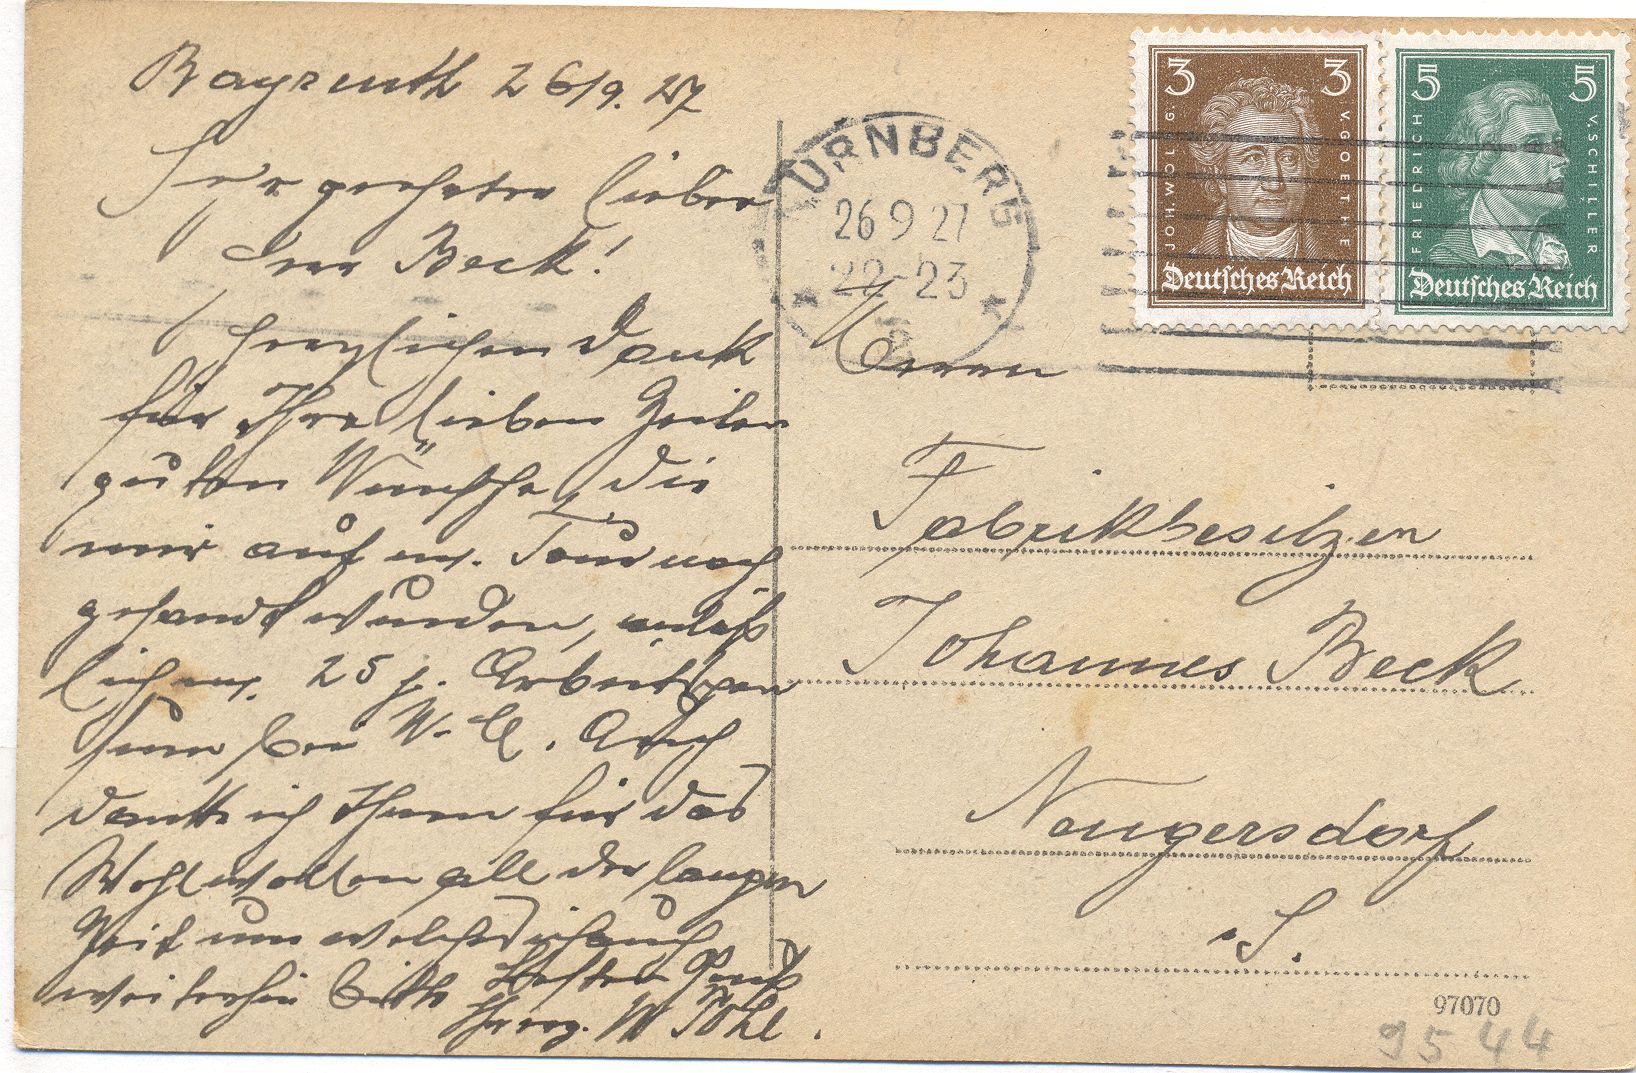 Bayreuth 26/9. 27
Sehr geehrter lieber
Herr Beck!
Herzlichen Dank
für Ihre lieben Zeilen
guten Wünsche, die
mir auf m. Tour nach
gesandt wurden, anläß
lich m. 25 j. Arbeits
bei W.
Auch
danke ich Ihnen für das
Wohlwollen all der langen
Zeit um welches ich auch
weiterhin bitte Besten Gruß
Ihr erg. W Pohl.
NÜRNBERG
26 9 27
22-23
3 3
JOH. WOLFG. V. GOETHE
Deutsches Reich
5 5
FRIEDRICH V. SCHILLER
Deutsches Reich
Herrn
Fabrikbesitzer
Johannes Beck
Neugersdorf
i. S.
97070
9544